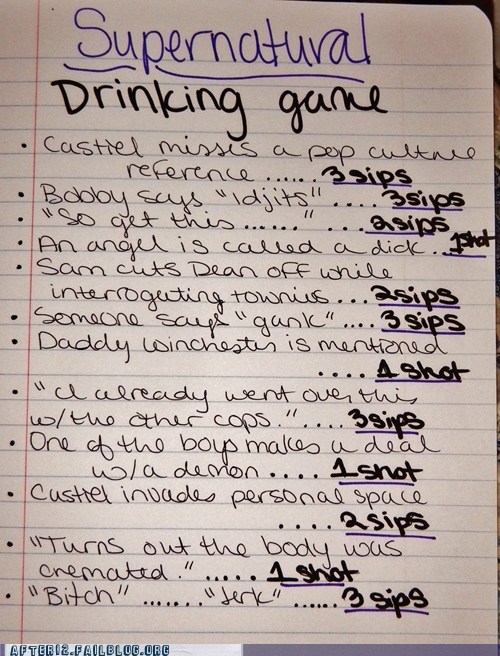 Supernatural
Drinking game
• Castiel misses a pop culture
reference ...... 3 sips
• Bobby says "idjits" .... 3 sips
• "So get this ......" ... 2 sips
• An angel is called a dick... 1 shot
• Sam cuts Dean off while
interrogating townies... 2 sips
• Someone says "gank".... 3 sips
• Daddy Winchester is mentioned
.... 1 shot
• "I already went over this
w/ the other cops.".... 3 sips
• One of the boys makes a deal
w/a demon .... 1 shot
• Castiel invades personal space
.... 2 sips
• "Turns out the body was
cremated." ..... 1 shot
• "Bitch" ....... "Jerk" ...... 3 sips
AFTER12.FAILBLOG.ORG